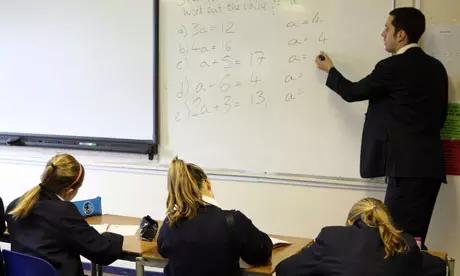 work out the value of
a) 3a = 12 a = 4
b) 4a = 16 a = 4
c) a + 5 = 17 a =
d) a - 6 = 4 a =
e) 2a + 3 = 13 a =